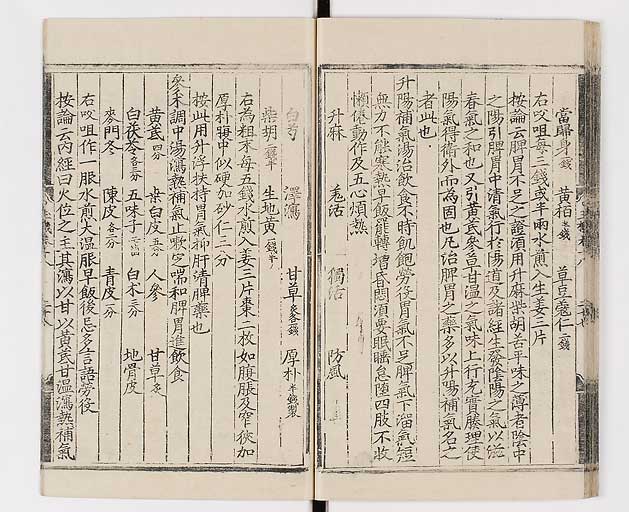 當歸身 黃栢 草豆蔻仁
右㕮咀每三錢或半兩水煎入生姜三片
按論云脾胃不足之證須用升麻柴胡苦平味之薄者陰中
之陽引脾胃中清氣行於陽道及諸經生發陰陽之氣以滋
春氣之和也又引黃芪參草甘溫之氣味上行充實腠理使
陽氣得衛外而為固也凡治脾胃之藥多以升陽補氣名之
者此也
升陽補氣湯治飲食不時飢飽勞役胃氣不足脾氣下溜氣短
無力不能寒熱早飯罷轉增昏悶須要眠睡怠墮四肢不收
懶倦動作及五心煩熱
升麻 羌活 獨活 防風
白芍 澤瀉 甘草 厚朴
柴胡 生地黃
右為粗末每五錢水煎入姜三片棗二枚如腹脹及窄狹加
厚朴腹中似硬加砂仁三分
按此用升浮扶持胃氣抑肝清脾藥也
參朮調中湯瀉熱補氣止嗽定喘和脾胃進飲食
黃芪四分 桑白皮五分 人參 甘草
白茯苓 五味子 白朮三分 地骨皮
麥門冬 陳皮 青皮
右㕮咀作一服水煎大溫服早飯後忌多言語勞役
按論云內經曰火位之主其瀉以甘以黃芪甘溫瀉熱補氣